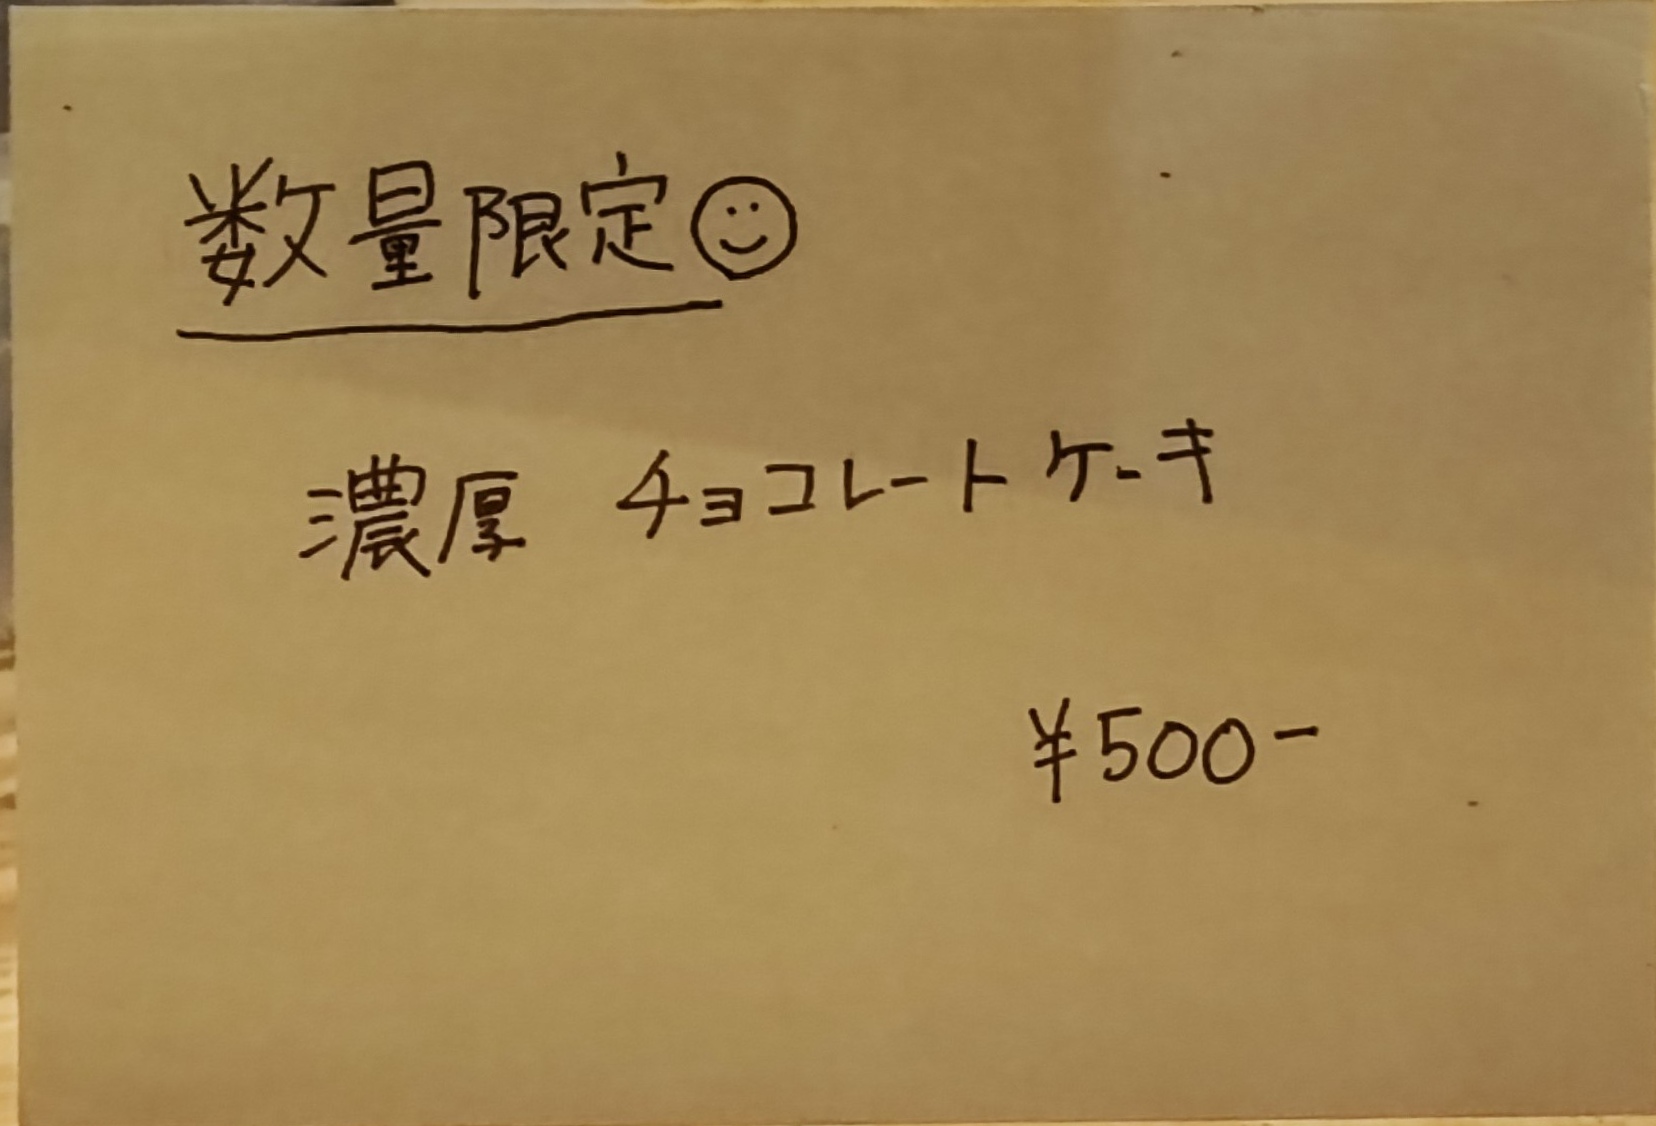 数量限定☺
濃厚 チョコレートケーキ
¥500-